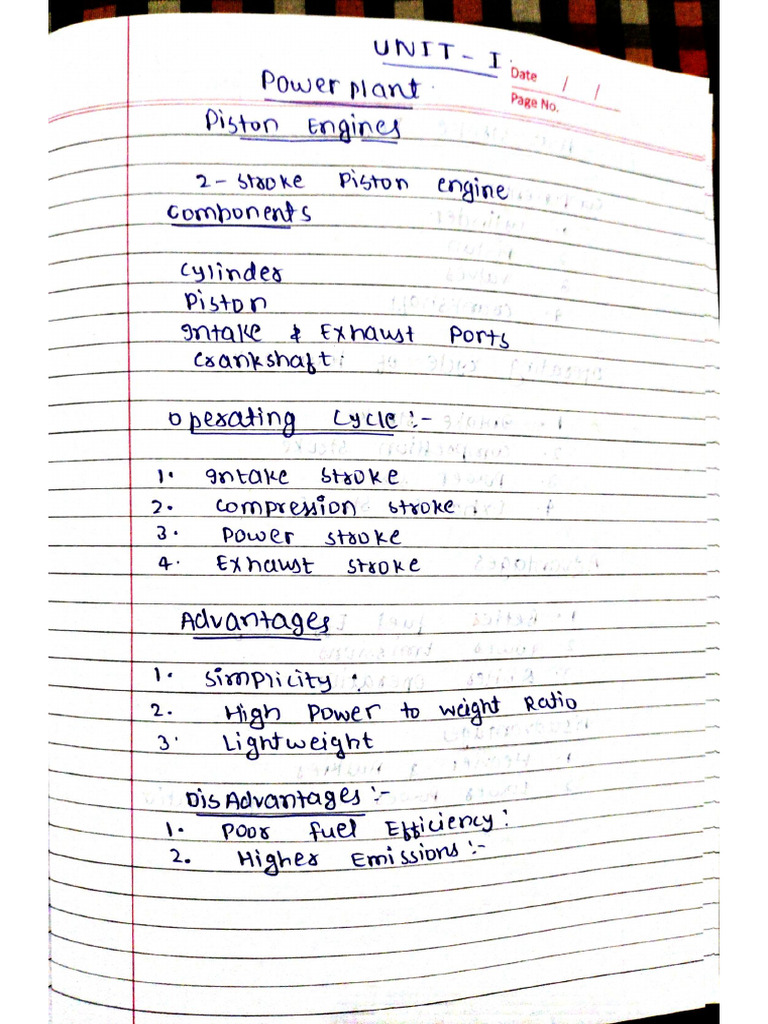 UNIT - I
Date / /
Power plant
Page No.
Piston Engines
2 - stroke Piston engine
Components
Cylinder
Piston
Intake & Exhaust Ports
Crankshaft :
Operating Cycle :-
1. Intake stroke
2. Compression stroke
3. Power stroke
4. Exhaust stroke
Advantages
1. Simplicity :
2. High Power to weight Ratio
3. Lightweight
DisAdvantages :-
1. Poor fuel Efficiency :
2. Higher Emissions :-